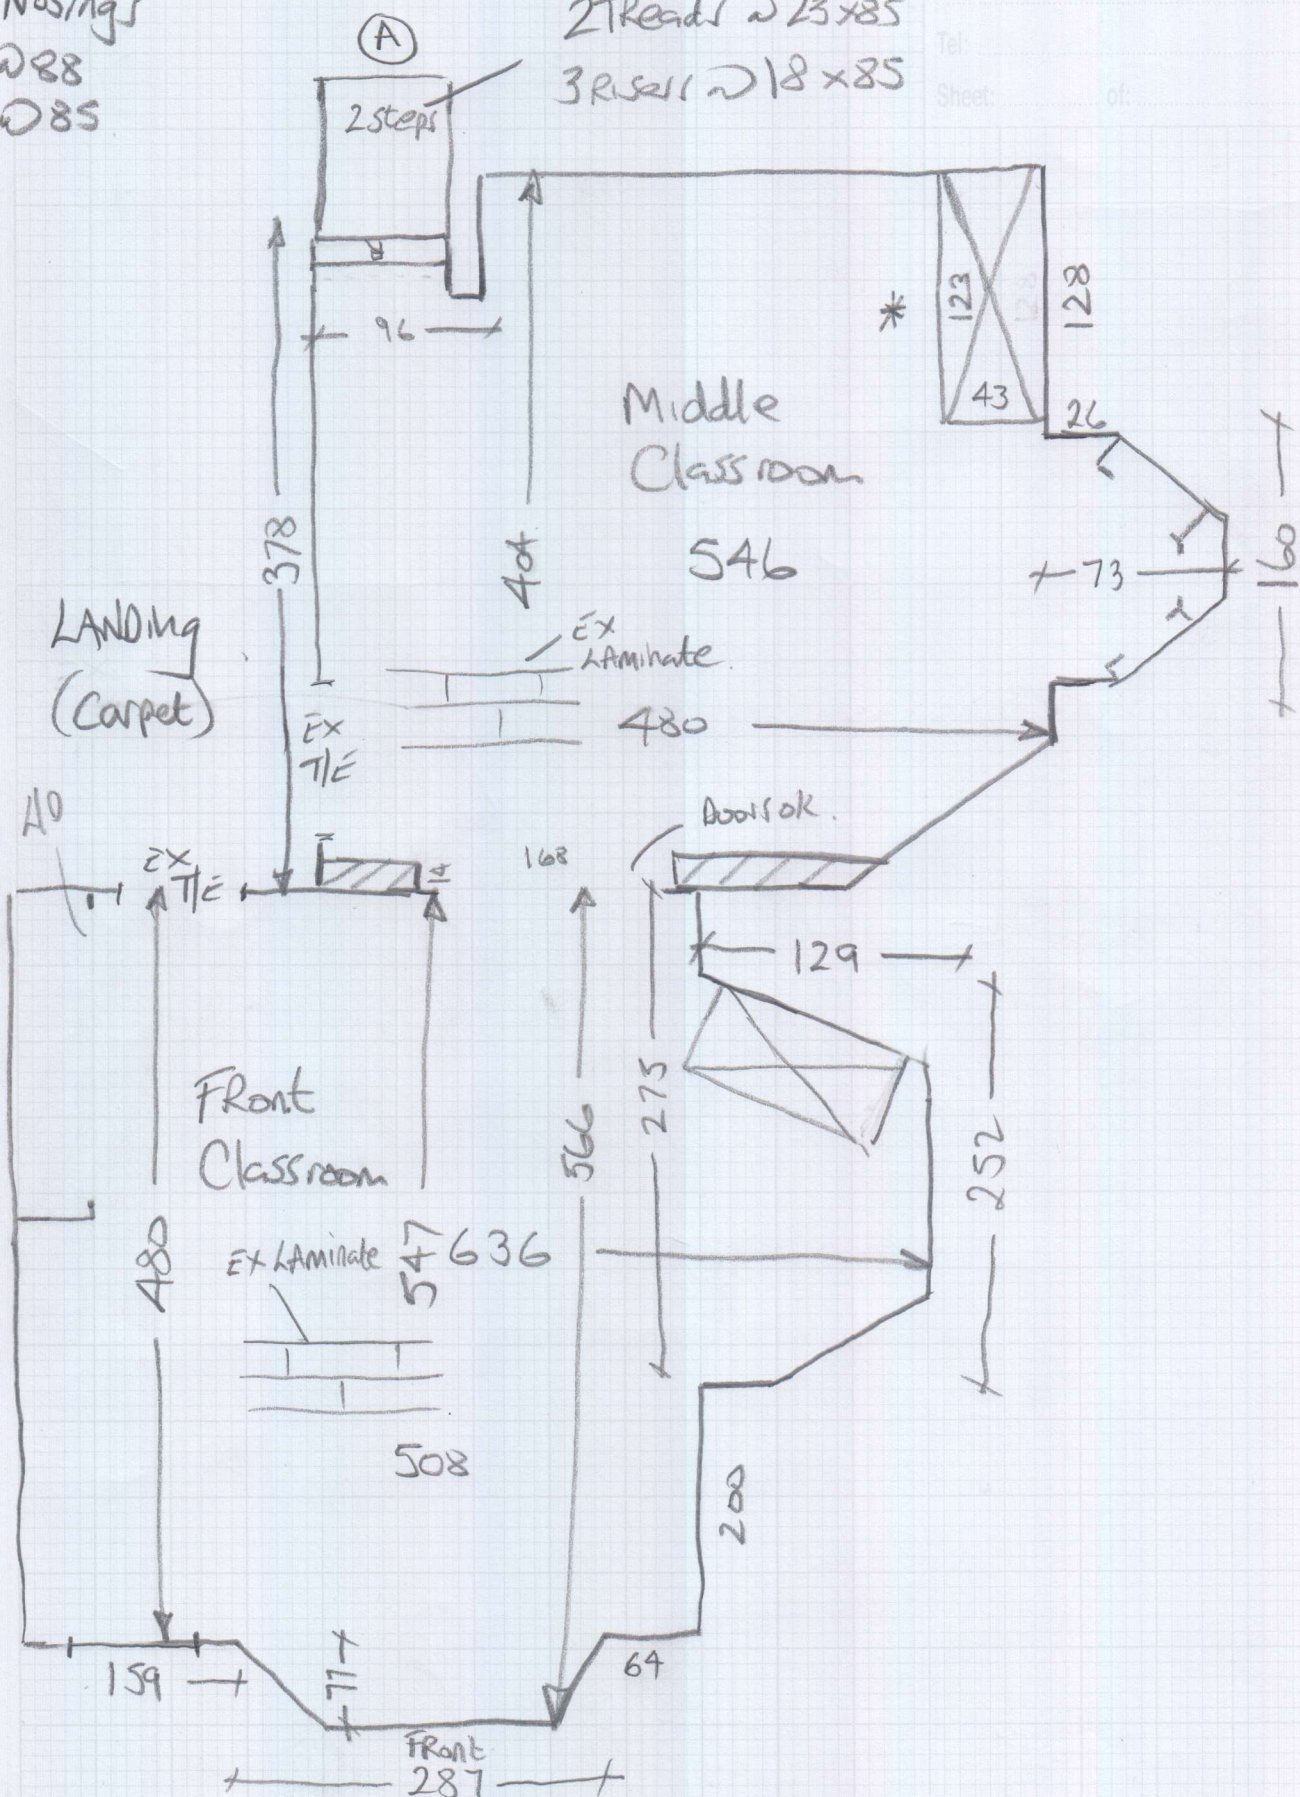 Nosings
@ 88
@ 85
A
2 steps
2 Treads @ 23 x 85
3 Risers @ 18 x 85
Tel:
Sheet: of:
96
*
123
128
43
26
Middle
Classroom
546
378
404
73
160
LANDing
(Carpet)
EX
LAminate.
480
EX
T/E
EX
T/E
168
Doors ok.
129
FRont
Classroom
480
547
566
275
252
636
EX LAminate
508
200
159
77
64
FRont
287